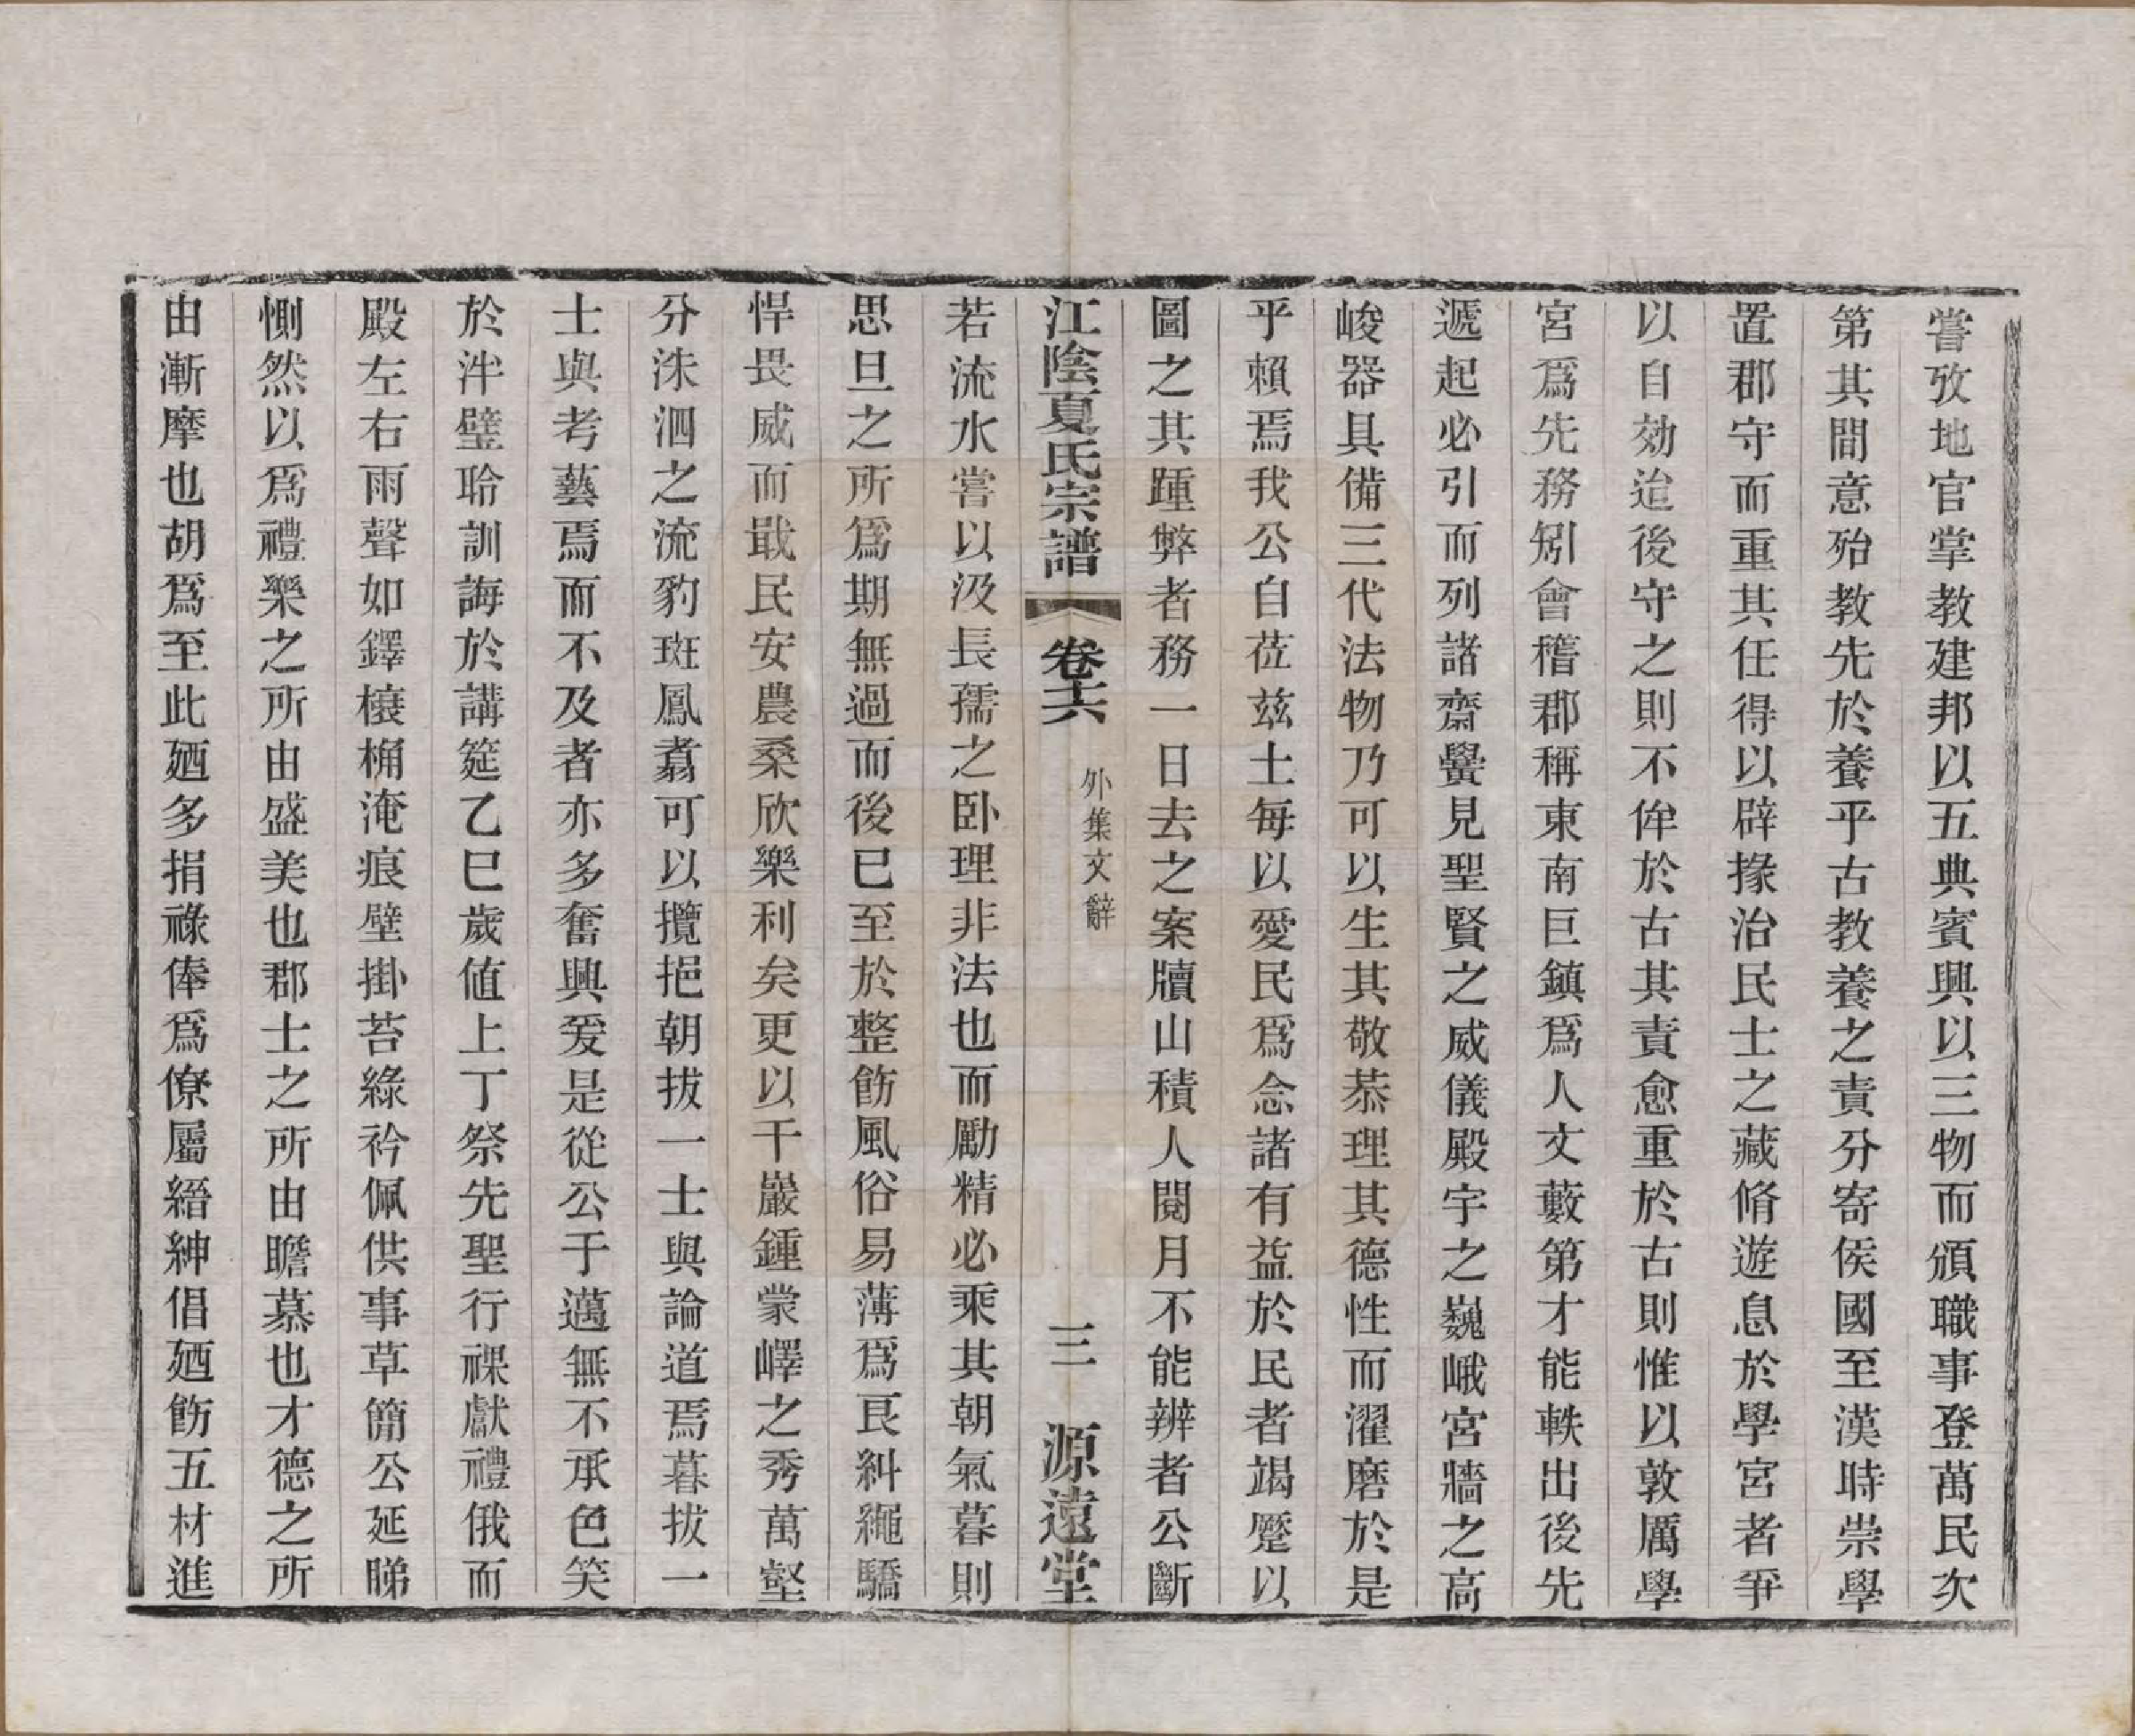 嘗攷地官掌教建邦以五典賓興以三物而頒職事登萬民次
第其間意殆教先於養乎古教養之責分寄侯國至漢時崇學
置郡守而重其任得以辟掾治民士之藏脩遊息於學宮者爭
以自効迨後守之則不侔於古其責愈重於古則惟以敦厲學
宮爲先務矧會稽郡稱東南巨鎮爲人文藪第才能軼出後先
遞起必引而列諸齋黌見聖賢之威儀殿宇之巍峨宮牆之高
峻器具備三代法物乃可以生其敬恭理其德性而濯磨於是
乎賴焉我公自莅玆土每以愛民爲念諸有益於民者竭蹷以
圖之其踵弊者務一日去之案牘山積人閱月不能辨者公斷
江陰夏氏宗譜 卷十六 外集文辭 三 源遠堂
若流水嘗以汲長孺之卧理非法也而勵精必乘其朝氣暮則
思旦之所爲期無過而後已至於整飭風俗易薄爲良糾繩驕
悍畏威而戢民安農桑欣樂利矣更以千巖鍾蒙嶧之秀萬壑
分洙泗之流豹斑鳳翥可以攬挹朝拔一士與論道焉暮拔一
士與考藝焉而不及者亦多奮興爰是從公于邁無不承色笑
於泮璧聆訓誨於講筵乙巳歲値上丁祭先聖行祼獻禮俄而
殿左右雨聲如鐸榱桷淹痕壁掛苔綠衿佩供事草簡公延睇
惻然以爲禮樂之所由盛美也郡士之所由瞻慕也才德之所
由漸摩也胡爲至此廼多捐祿俸爲僚屬縉紳倡廼飭五材進